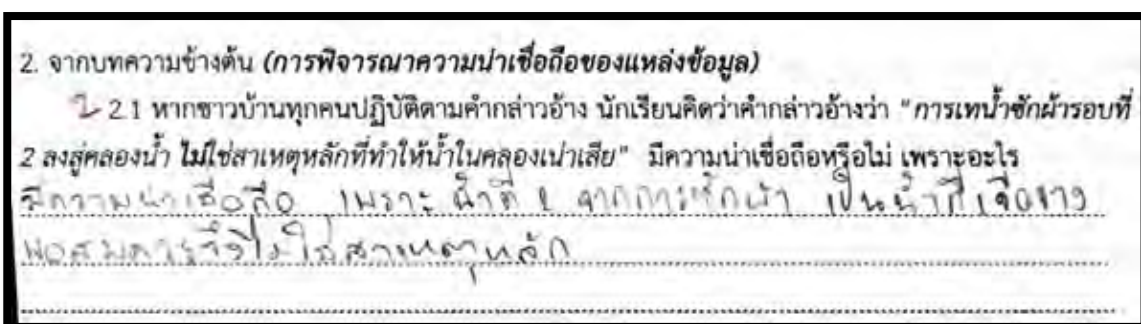 2. จากบทความข้างต้น (การพิจารณาความน่าเชื่อถือของแหล่งข้อมูล)
2 2.1 หากชาวบ้านทุกคนปฏิบัติตามคำกล่าวอ้าง นักเรียนคิดว่าคำกล่าวอ้างว่า "การเทน้ำซักผ้ารอบที่
2 ลงสู่คลองน้ำ ไม่ใช่สาเหตุหลักที่ทำให้น้ำในคลองเน่าเสีย" มีความน่าเชื่อถือหรือไม่ เพราะอะไร
มีความน่าเชื่อถือ เพราะ น้ำที่ 2 จากการซักผ้า เป็นน้ำที่เจือจาง
พอสมควรจึงไม่ใช่สาเหตุหลัก